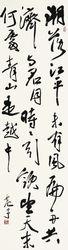 潮落江平未有風扁舟共
濟与君同時時引領望天末
何處青山是越中